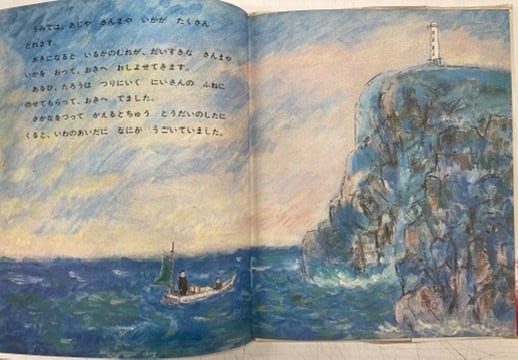 うみでは、あじや さんまや いかが たくさん
とれます。
ふえになると いるかのむれが、だいすきな さんまや
いかを おって、おきへ おしよせてきます。
あるひ、たろうは つりにいく にいさんの ふねに
のせてもらって、おきへ でました。
さかなをつって かえるとちゅう とうだいのしたに
くると、いわのあいだに なにか うごいていました。